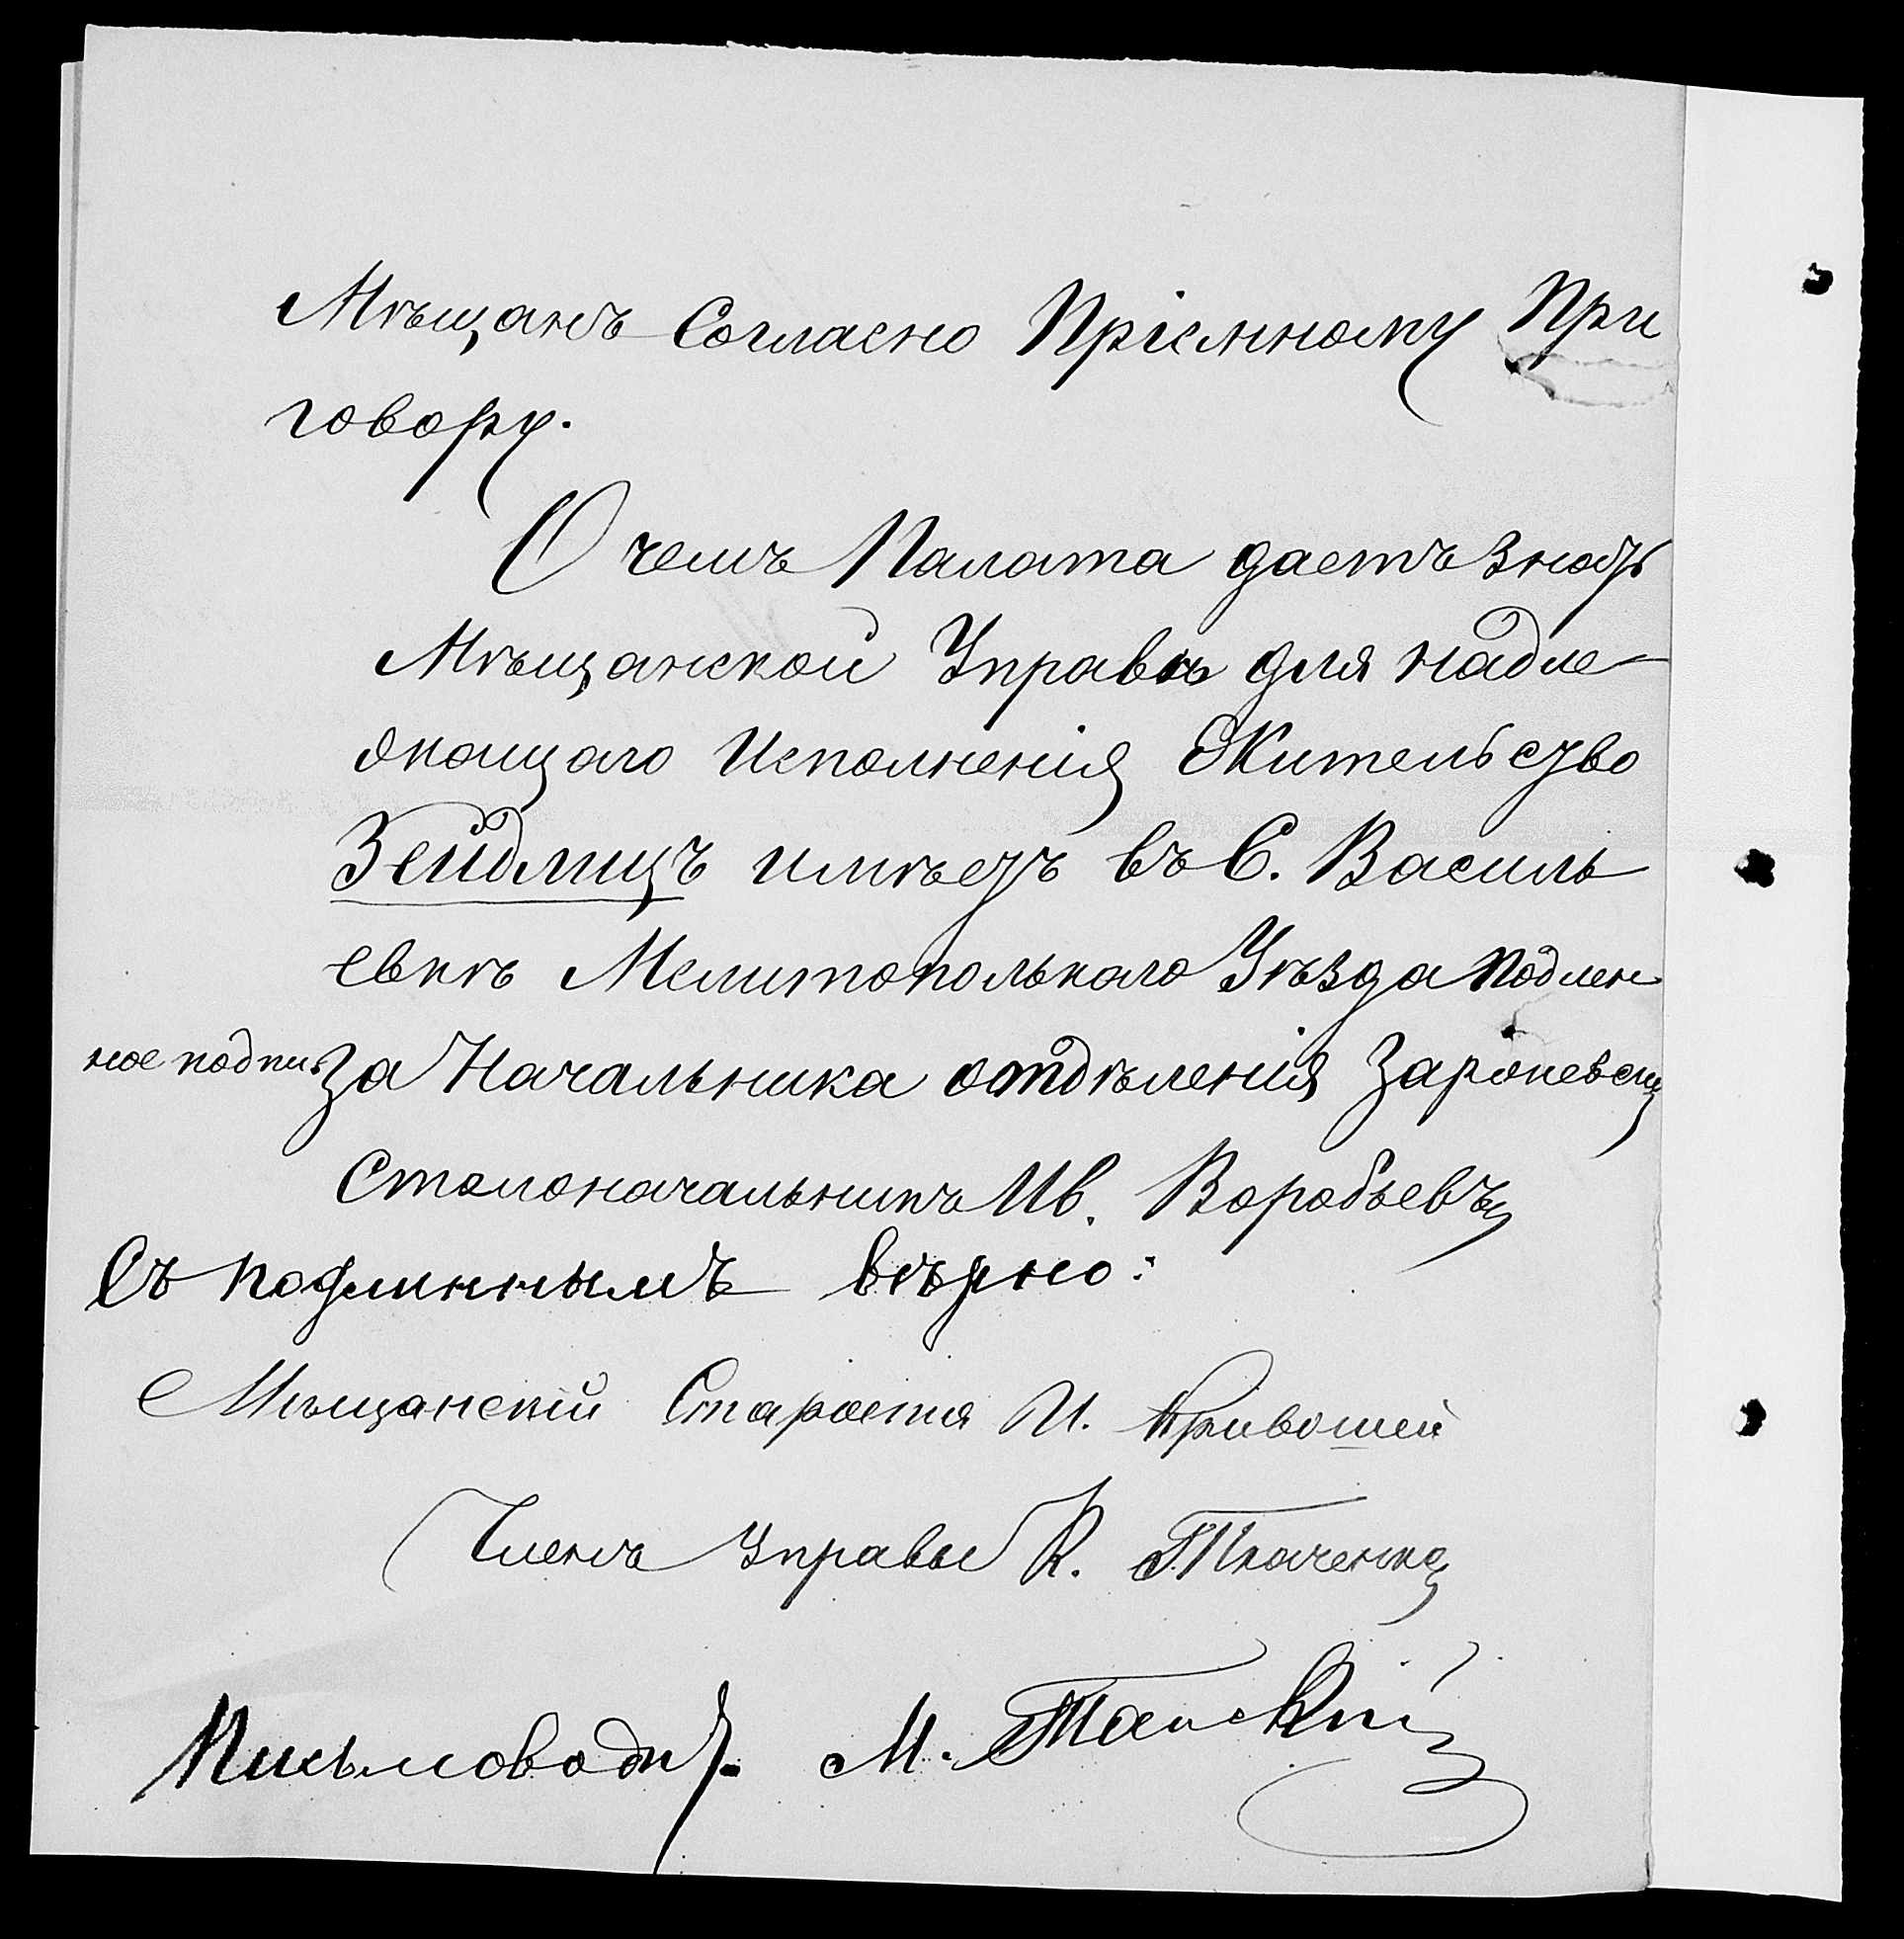 Мѣщанъ Согласно Пріемному При
говору.
О чемъ Палата даетъ знать
Мѣщанской Управѣ для надле-
жащаго Исполненія Жительство
Зейдлицъ имѣетъ въ С. Василь
евкѣ Мелитополькаго Уѣзда Подлен
ное подпис За Начальника отдѣленія
Столоначальникъ Ив. Воробьевъ
Съ подлиннымъ вѣрно:
Мѣщанскій Староста И. Кривошей
Членъ Управы К. Ткаченко
Письмоводит. М.